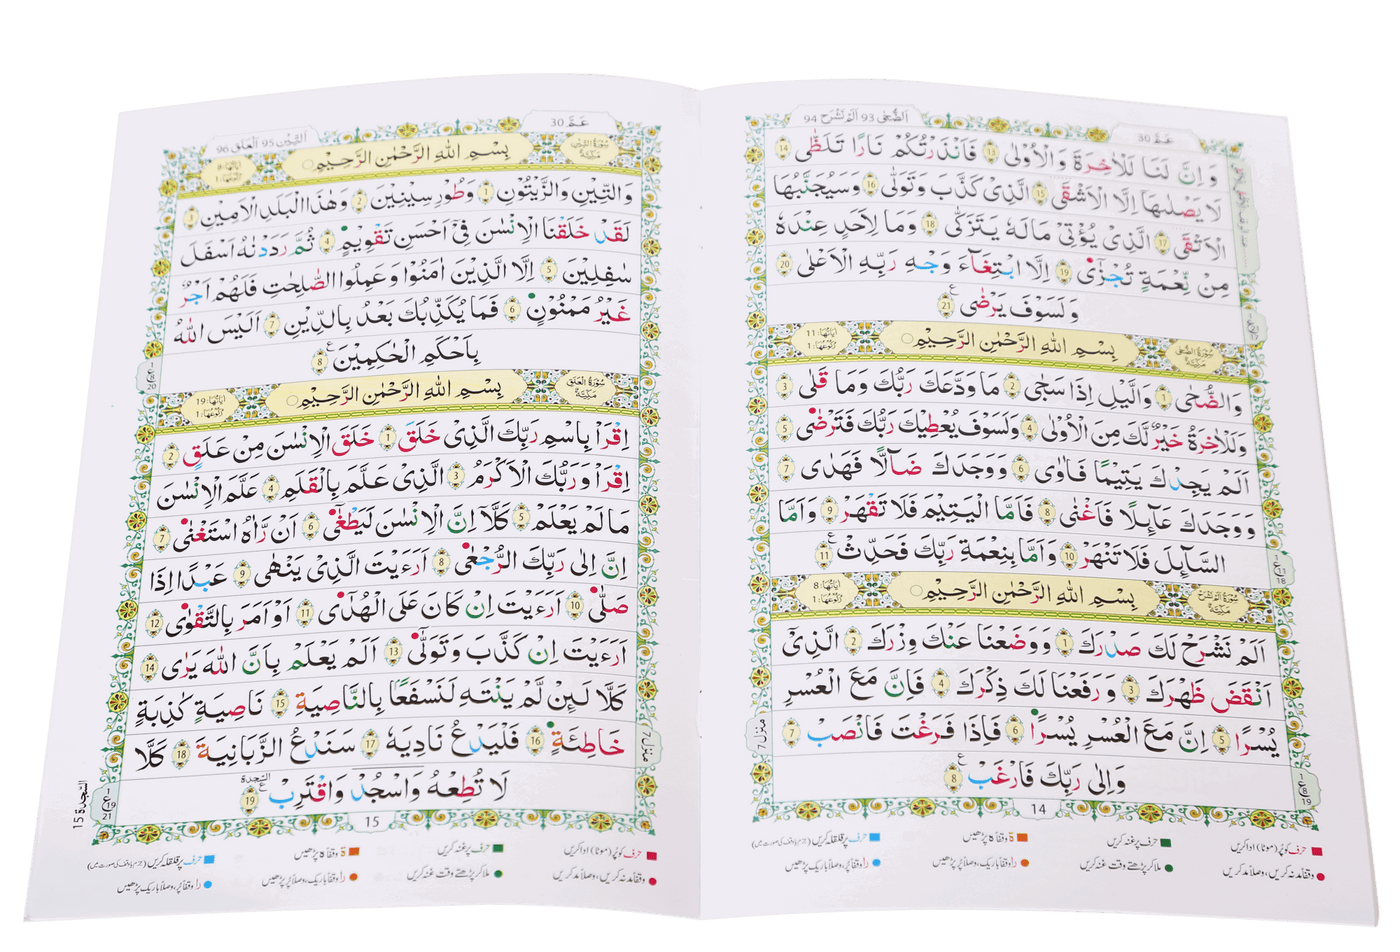 عَمَّ 30
اَلضُّحٰى 93 اَلَمْ نَشْرَحْ 94
وَ اِنَّ لَنَا لَلْاٰخِرَةَ وَ الْاُوْلٰى 13 فَاَنْذَرْتُكُمْ نَارًا تَلَظّٰى 14
لَا يَصْلٰىهَاۤ اِلَّا الْاَشْقَى 15 الَّذِىْ كَذَّبَ وَ تَوَلّٰى 16 وَ سَيُجَنَّبُهَا
الْاَتْقَى 17 الَّذِىْ يُؤْتِىْ مَالَهٗ يَتَزَكّٰى 18 وَمَا لِاَحَدٍ عِنْدَهٗ
مِنْ نِّعْمَةٍ تُجْزٰٓى 19 اِلَّا ابْتِغَآءَ وَجْهِ رَبِّهِ الْاَعْلٰى 20
وَ لَسَوْفَ يَرْضٰى 21
سُوْرَةُ الضُّحٰى مَكِّيَّةٌ بِسْمِ اللّٰهِ الرَّحْمٰنِ الرَّحِيْمِ اٰيَاتُهَا: 11 رُكُوْعُهَا: 1
وَالضُّحٰى 1 وَالَّيْلِ اِذَا سَجٰى 2 مَا وَدَّعَكَ رَبُّكَ وَمَا قَلٰى 3
وَلَلْاٰخِرَةُ خَيْرٌ لَّكَ مِنَ الْاُوْلٰى 4 وَلَسَوْفَ يُعْطِيْكَ رَبُّكَ فَتَرْضٰى 5
اَلَمْ يَجِدْكَ يَتِيْمًا فَاٰوٰى 6 وَ وَجَدَكَ ضَآلًّا فَهَدٰى 7
وَ وَجَدَكَ عَآئِلًا فَاَغْنٰى 8 فَاَمَّا الْيَتِيْمَ فَلَا تَقْهَرْ 9 وَ اَمَّا
السَّآئِلَ فَلَا تَنْهَرْ 10 وَ اَمَّا بِنِعْمَةِ رَبِّكَ فَحَدِّثْ 11
سُوْرَةُ اَلَمْ نَشْرَحْ مَكِّيَّةٌ بِسْمِ اللّٰهِ الرَّحْمٰنِ الرَّحِيْمِ اٰيَاتُهَا: 8 رُكُوْعُهَا: 1
اَلَمْ نَشْرَحْ لَكَ صَدْرَكَ 1 وَ وَضَعْنَا عَنْكَ وِزْرَكَ 2 الَّذِىْۤ
اَنْقَضَ ظَهْرَكَ 3 وَ رَفَعْنَا لَكَ ذِكْرَكَ 4 فَاِنَّ مَعَ الْعُسْرِ
يُسْرًا 5 اِنَّ مَعَ الْعُسْرِ يُسْرًا 6 فَاِذَا فَرَغْتَ فَانْصَبْ 7
وَاِلٰى رَبِّكَ فَارْغَبْ 8
منزل 7
14
حرف کو پُر (موٹا) ادا کریں حرف پر غنہ کریں ة وقفاً ہ پڑھیں حرف پر قلقلہ کریں
وقفاً مد نہ کریں، وصلاً مد کریں ملا کر پڑھتے وقت غنہ کریں را وقفاً باریک، وصلاً پُر پڑھیں را وقفاً پُر، وصلاً باریک پڑھیں
عَمَّ 30
اَلتِّيْن 95 اَلْعَلَق 96
سُوْرَةُ التِّيْنِ مَكِّيَّةٌ بِسْمِ اللّٰهِ الرَّحْمٰنِ الرَّحِيْمِ اٰيَاتُهَا: 8 رُكُوْعُهَا: 1
وَالتِّيْنِ وَالزَّيْتُوْنِ 1 وَطُوْرِ سِيْنِيْنَ 2 وَهٰذَا الْبَلَدِ الْاَمِيْنِ 3
لَقَدْ خَلَقْنَا الْاِنْسٰنَ فِىْۤ اَحْسَنِ تَقْوِيْمٍ 4 ثُمَّ رَدَدْنٰهُ اَسْفَلَ
سٰفِلِيْنَ 5 اِلَّا الَّذِيْنَ اٰمَنُوْا وَعَمِلُوا الصّٰلِحٰتِ فَلَهُمْ اَجْرٌ
غَيْرُ مَمْنُوْنٍ 6 فَمَا يُكَذِّبُكَ بَعْدُ بِالدِّيْنِ 7 اَلَيْسَ اللّٰهُ
بِاَحْكَمِ الْحٰكِمِيْنَ 8
سُوْرَةُ الْعَلَقِ مَكِّيَّةٌ بِسْمِ اللّٰهِ الرَّحْمٰنِ الرَّحِيْمِ اٰيَاتُهَا: 19 رُكُوْعُهَا: 1
اِقْرَاْ بِاسْمِ رَبِّكَ الَّذِىْ خَلَقَ 1 خَلَقَ الْاِنْسٰنَ مِنْ عَلَقٍ 2
اِقْرَاْ وَ رَبُّكَ الْاَكْرَمُ 3 الَّذِىْ عَلَّمَ بِالْقَلَمِ 4 عَلَّمَ الْاِنْسٰنَ
مَا لَمْ يَعْلَمْ 5 كَلَّاۤ اِنَّ الْاِنْسٰنَ لَيَطْغٰٓى 6 اَنْ رَّاٰهُ اسْتَغْنٰى 7
اِنَّ اِلٰى رَبِّكَ الرُّجْعٰى 8 اَرَءَيْتَ الَّذِىْ يَنْهٰى 9 عَبْدًا اِذَا
صَلّٰى 10 اَرَءَيْتَ اِنْ كَانَ عَلَى الْهُدٰٓى 11 اَوْ اَمَرَ بِالتَّقْوٰى 12
اَرَءَيْتَ اِنْ كَذَّبَ وَ تَوَلّٰى 13 اَلَمْ يَعْلَمْ بِاَنَّ اللّٰهَ يَرٰى 14
كَلَّا لَئِنْ لَّمْ يَنْتَهِ لَنَسْفَعًۢا بِالنَّاصِيَةِ 15 نَاصِيَةٍ كَاذِبَةٍ
خَاطِئَةٍ 16 فَلْيَدْعُ نَادِيَهٗ 17 سَنَدْعُ الزَّبَانِيَةَ 18 كَلَّا
لَا تُطِعْهُ وَاسْجُدْ وَاقْتَرِبْ 19 السَّجدة
السَّجدة 15
منزل 7
15
حرف کو پُر (موٹا) ادا کریں حرف پر غنہ کریں ة وقفاً ہ پڑھیں حرف پر قلقلہ کریں
وقفاً مد نہ کریں، وصلاً مد کریں ملا کر پڑھتے وقت غنہ کریں را وقفاً باریک، وصلاً پُر پڑھیں را وقفاً پُر، وصلاً باریک پڑھیں